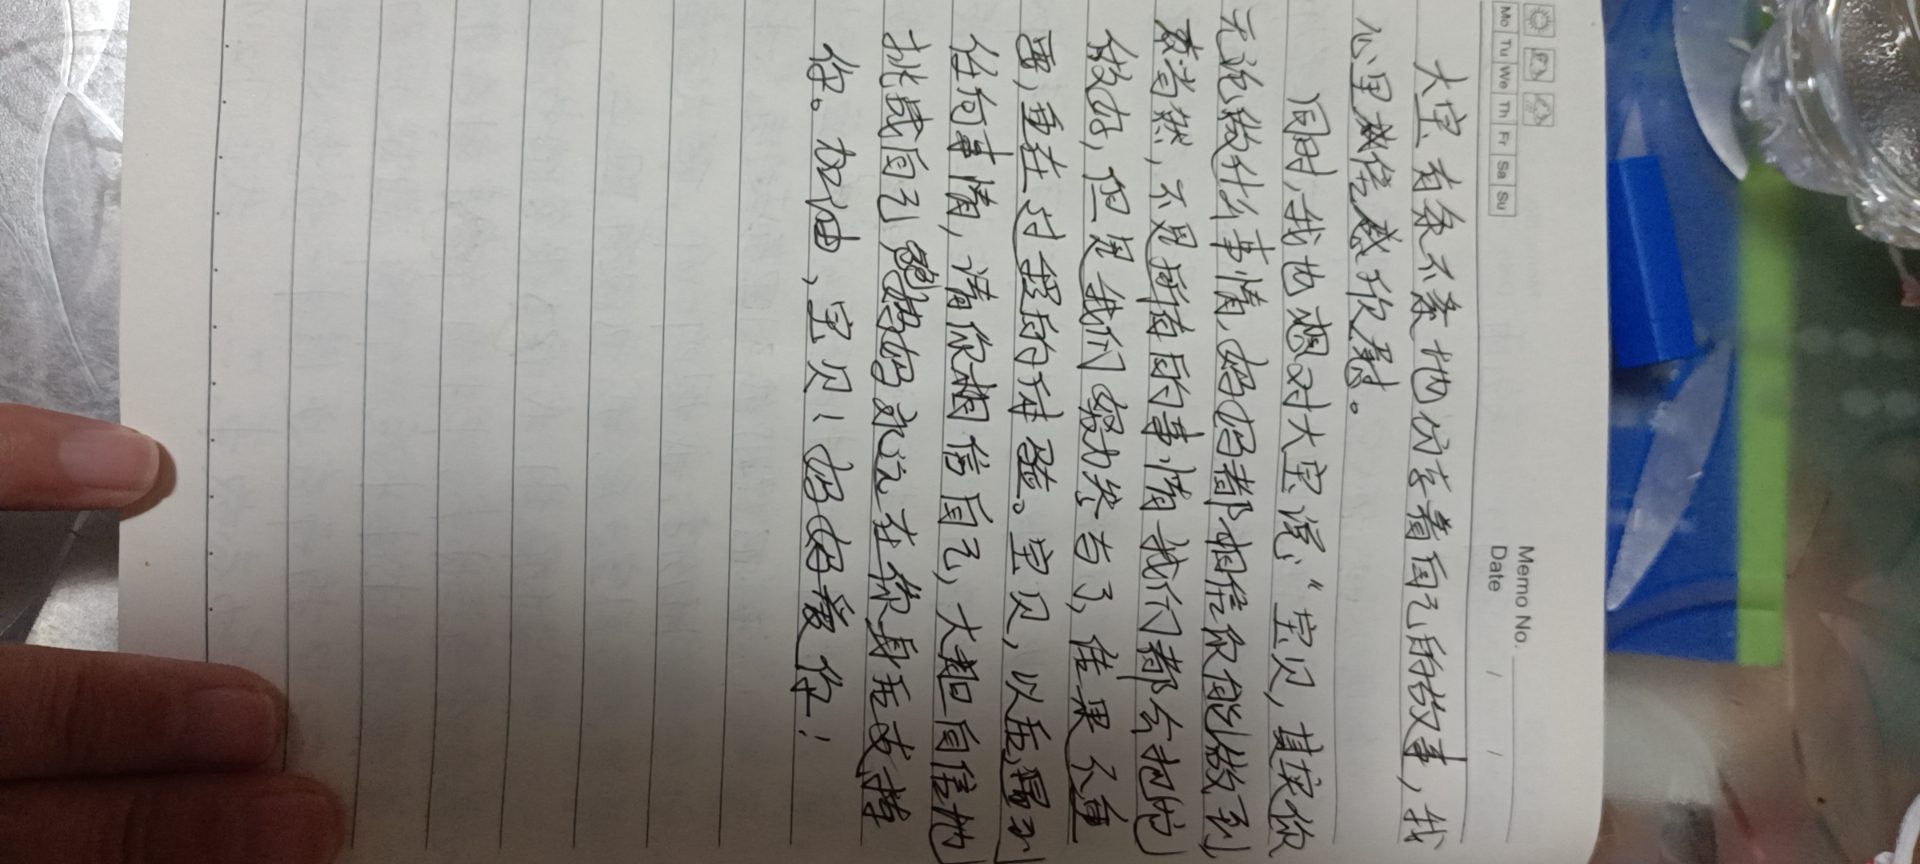 Memo No.
Mo Tu We Th Fr Sa Su
Date / /
大宝有条不紊地仿写着自己的故事,我
心里越倍感欣慰。
同时,我也想对大宝说:“宝贝,其实你
无论做什么事情,妈妈都相信你能做到
。当然,不是所有的事情我们都会把它
做好,但是我们努力尝试了,结果不重
要,重在过程的体验。宝贝,以后遇到
任何事情,请你相信自己,大胆自信地
挑战自己,妈妈永远在你身后支持
你。加油,宝贝!妈妈爱你!